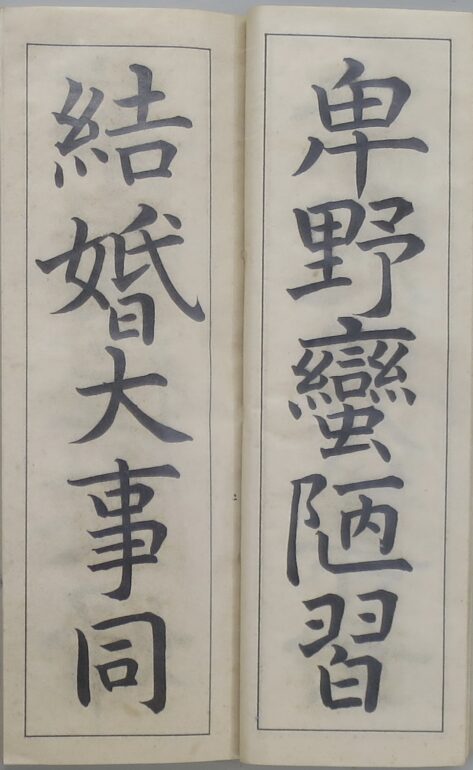 卑野蠻陋習
結婚大事同